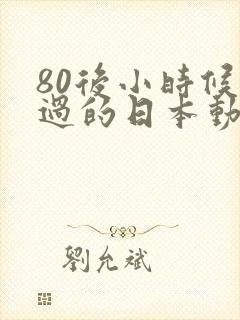 80後小時候
過的日本動
劉允斌